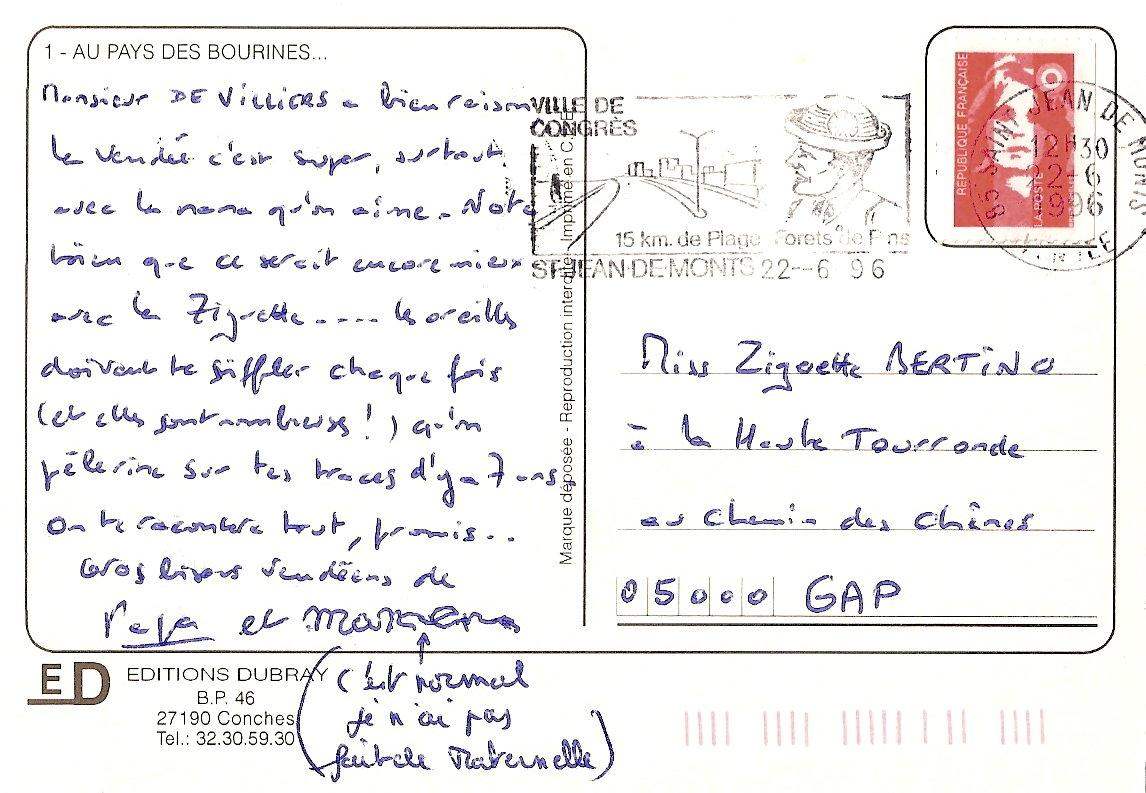 1 - AU PAYS DES BOURINES...
Monsieur DE VILLIERS a bien raison
la Vendée c'est super, surtout
avec la nana qu'on aime. Note
bien que ce serait encore mieux
avec la Ziguette.... les oreilles
doivent te siffler chaque fois
(et elles sont nombreuses !) qu'on
pèlerine sur tes traces d'y a 7 ans.
On te racontera tout, promis..
Gros bisous vendéens de
Papa et Maman
(c'est normal
je n'ai pas
fait de Maternelle)
ED
EDITIONS DUBRAY
B.P. 46
27190 Conches
Tel.: 32.30.59.30
Marque déposée - Reproduction interdite - Imprimé en C.E.E.
VILLE DE
CONGRÈS
15 km. de Plage Forets de Pins
ST JEAN-DE-MONTS 22--6 96
RÉPUBLIQUE FRANÇAISE
LA POSTE
85 SAINT JEAN DE MONTS
12H30
22-6
1996
VENDEE
Miss Ziguette BERTINO
à la Haute Tourronde
au Chemin des Chênes
05000 GAP